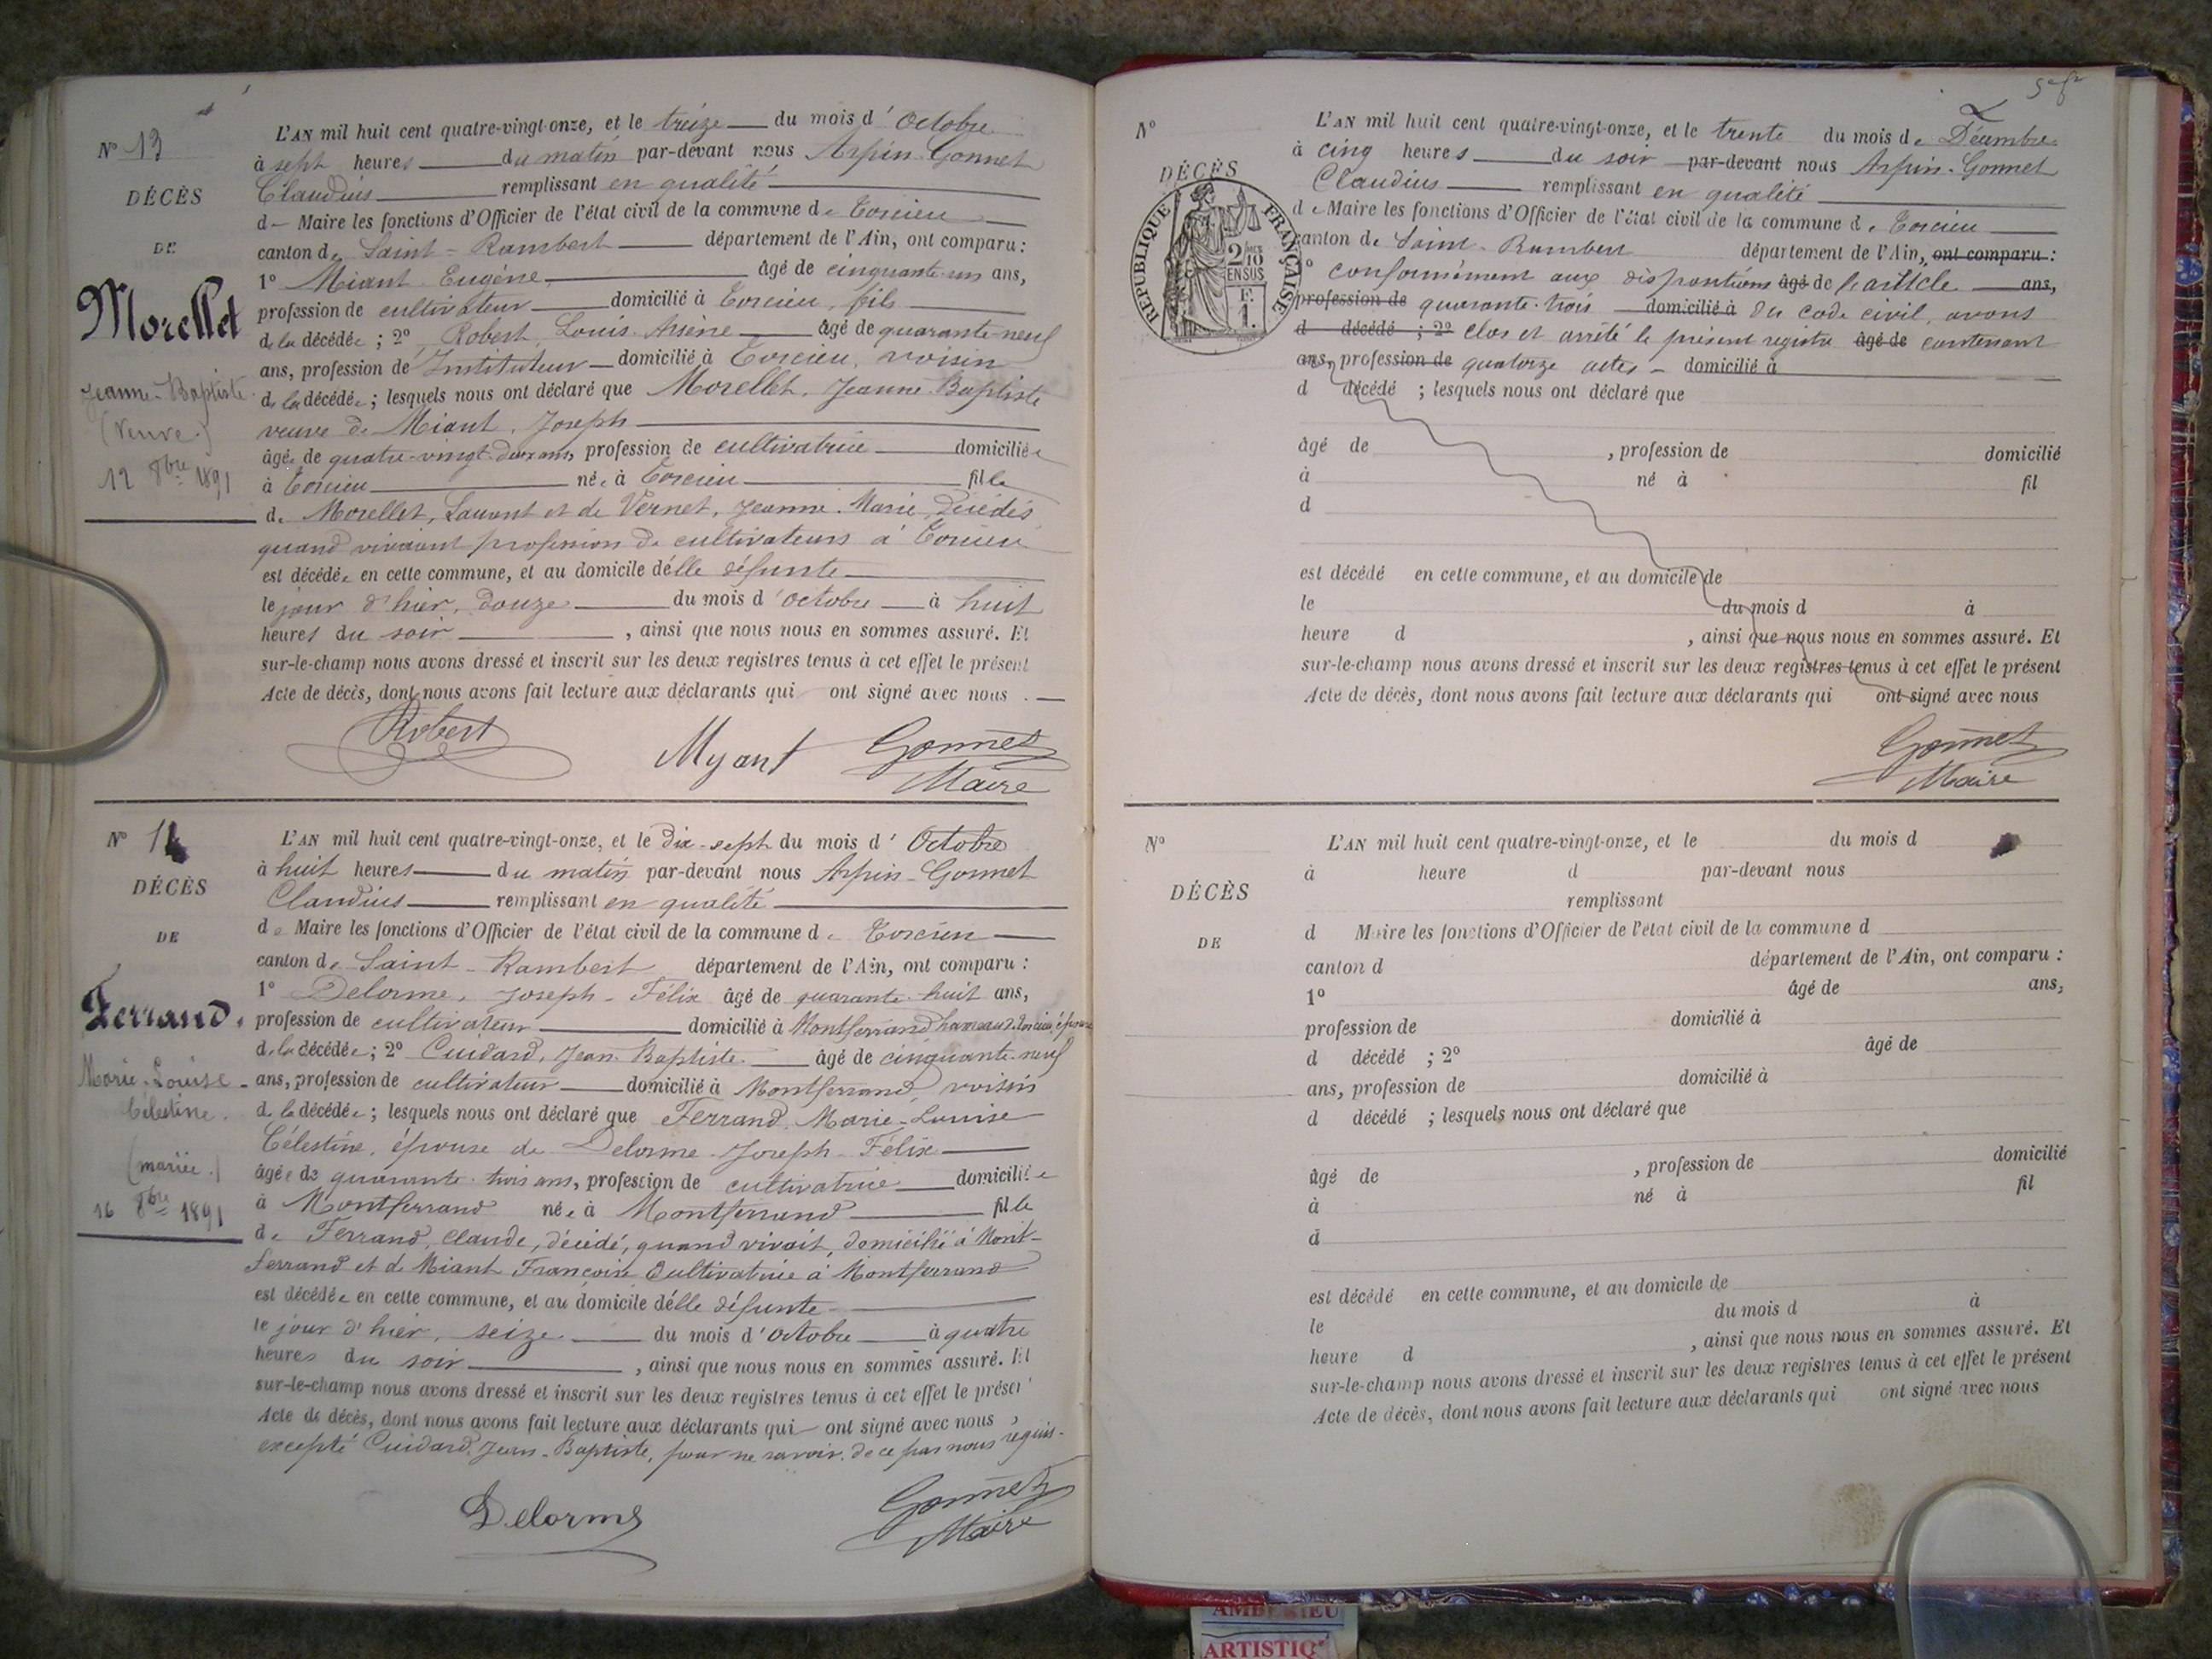 Nº 13
DÉCÈS
DE
Morellet
Jeanne-Baptiste
(Veuve.)
12 8bre 1891
L'AN mil huit cent quatre-vingt-onze, et le treize du mois d'Octobre
à sept heures du matin par-devant nous Arpin-Gonnet
Claudius remplissant en qualité
d Maire les fonctions d'Officier de l'état civil de la commune de Torcieu
canton de Saint-Rambert département de l'Ain, ont comparu :
1º Miant Eugène âgé de cinquante-un ans,
profession de cultivateur domicilié à Torcieu, fils
de la décédée ; 2º Robert, Louis Arsène âgé de quarante-neuf
ans, profession de Instituteur domicilié à Torcieu, voisin
de la décédée ; lesquels nous ont déclaré que Morellet, Jeanne Baptiste
veuve de Miant, Joseph
âgée de quatre-vingt-deux ans, profession de cultivatrice domiciliée
à Torcieu née à Torcieu fille
de Morellet, Laurent et de Vernet, Jeanne-Marie, décédés
quand vivaient profession de cultivateurs à Torcieu
est décédée en cette commune, et au domicile d'elle défunte
le jour d'hier, douze du mois d'octobre à huit
heures du soir , ainsi que nous nous en sommes assuré. Et
sur-le-champ nous avons dressé et inscrit sur les deux registres tenus à cet effet le présent
Acte de décès, dont nous avons fait lecture aux déclarants qui ont signé avec nous .
Robert Myant Gonnet
Maire
Nº 14
DÉCÈS
DE
Ferrand.
Marie-Louise-
Célestine.
(mariée.)
16 8bre 1891
L'AN mil huit cent quatre-vingt-onze, et le Dix-sept du mois d'Octobre
à huit heures du matin par-devant nous Arpin-Gonnet
Claudius remplissant en qualité
de Maire les fonctions d'Officier de l'état civil de la commune de Torcieu
canton de Saint-Rambert département de l'Ain, ont comparu :
1º Delorme, Joseph-Félix âgé de quarante-huit ans,
profession de cultivateur domicilié à Montferrand hameau de Torcieu, époux
de la décédée ; 2º Cuidard, Jean-Baptiste. âgé de cinquante-neuf
ans, profession de cultivateur domicilié à Montferrand, voisin
de la décédée ; lesquels nous ont déclaré que Ferrand, Marie-Louise
Célestine, épouse de Delorme Joseph-Félix
âgée de quarante-trois ans, profession de cultivatrice domiciliée
à Montferrand née à Montferrand fille
de Ferrand, Claude, décédé, quand vivait, domicilié à Mont-
ferrand et de Miant Françoise Cultivatrice à Montferrand
est décédée en cette commune, et au domicile d'elle défunte
le jour d'hier, seize du mois d'octobre à quatre
heures du soir , ainsi que nous nous en sommes assuré. Et
sur-le-champ nous avons dressé et inscrit sur les deux registres tenus à cet effet le présen
Acte de décès, dont nous avons fait lecture aux déclarants qui ont signé avec nous ,
excepté Cuidard, Jean-Baptiste, pour ne savoir, de ce par nous requis.
Delorme Gonnet
Maire
Nº
DÉCÈS
RÉPUBLIQUE FRANÇAISE
2/10
EN SUS
L'AN mil huit cent quatre-vingt-onze, et le trente du mois de Décembre
à cinq heures du soir par-devant nous Arpin-Gonnet
Claudius remplissant en qualité
de Maire les fonctions d'Officier de l'état civil de la commune de Torcieu
canton de Saint-Rambert département de l'Ain, ont comparu :
1º conformément aux dispositions âgé de l'article ans,
profession de quarante-trois domicilié à du code civil, avons
d décédé ; 2º clos et arrêté le présent registre âgé de contenant
ans, profession de quatorze actes - domicilié à
d décédé ; lesquels nous ont déclaré que
âgé de , profession de domicilié
à né à fil
d
est décédé en cette commune, et au domicile de
le du mois d à
heure d , ainsi que nous nous en sommes assuré. Et
sur-le-champ nous avons dressé et inscrit sur les deux registres tenus à cet effet le présent
Acte de décès, dont nous avons fait lecture aux déclarants qui ont signé avec nous
Gonnet
Maire
Nº
DÉCÈS
DE
L'AN mil huit cent quatre-vingt-onze, et le du mois d
à heure d par-devant nous
remplissant
d Maire les fonctions d'Officier de l'état civil de la commune d
canton d département de l'Ain, ont comparu :
1º âgé de ans,
profession de domicilié à
d décédé ; 2º âgé de
ans, profession de domicilié à
d décédé ; lesquels nous ont déclaré que
âgé de , profession de domicilié
à né à fil
d
est décédé en cette commune, et au domicile de
le du mois d à
heure d , ainsi que nous nous en sommes assuré. Et
sur-le-champ nous avons dressé et inscrit sur les deux registres tenus à cet effet le présent
Acte de décès, dont nous avons fait lecture aux déclarants qui ont signé avec nous
AMBERIEU
ARTISTIQ